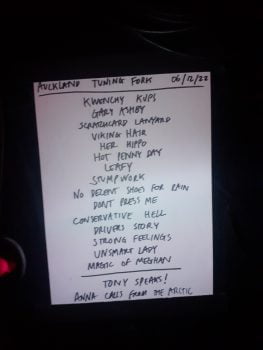 AUCKLAND TUNING FORK 06/12/22
KWENCHY KUPS
GARY ASHBY
SCRATCHCARD LANYARD
VIKING HAIR
HER HIPPO
HOT PENNY DAY
LEAFY
STUMPWORK
NO DECENT SHOES FOR RAIN
DON'T PRESS ME
CONSERVATIVE HELL
DRIVERS STORY
STRONG FEELINGS
UNSMART LADY
MAGIC OF MEGHAN
TONY SPEAKS!
ANNA CALLS FROM THE ARCTIC